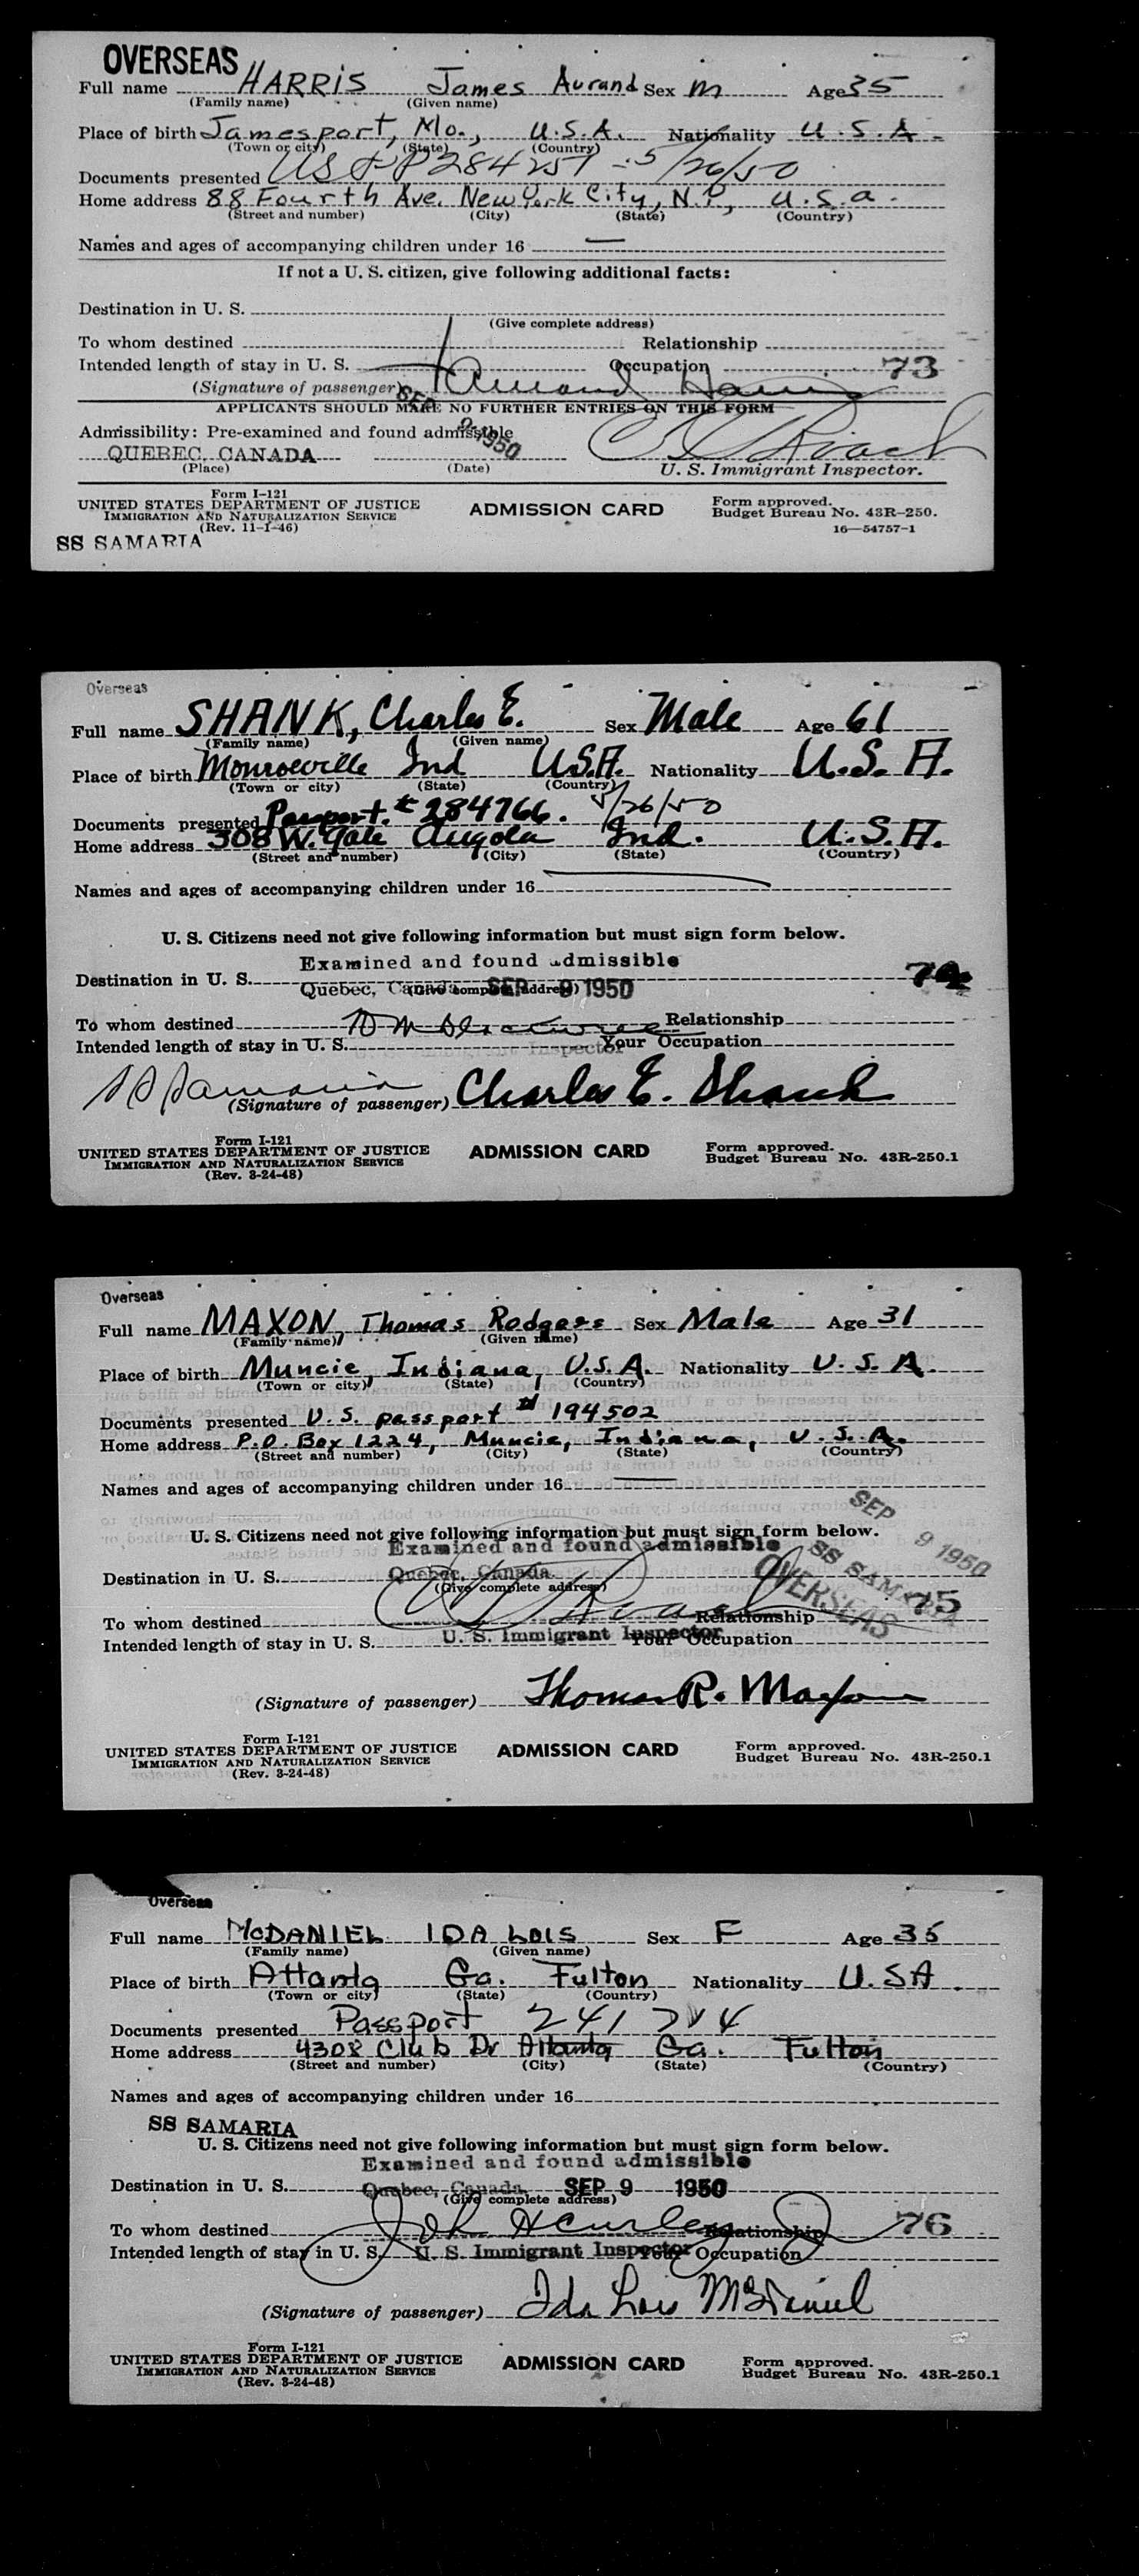 OVERSEAS
Full name HARRIS James Aurand Sex M Age 35
(Family name) (Given name)
Place of birth Jamesport, Mo., U.S.A. Nationality U.S.A.
(Town or city) (State) (Country)
Documents presented US PP 284257 - 5/26/50
Home address 88 Fourth Ave. New York City, N.Y., U.S.A.
(Street and number) (City) (State) (Country)
Names and ages of accompanying children under 16 —
If not a U. S. citizen, give following additional facts:
Destination in U. S.
(Give complete address)
To whom destined Relationship
Intended length of stay in U. S. Occupation 73
(Signature of passenger) Aurand Harris
APPLICANTS SHOULD MAKE NO FURTHER ENTRIES ON THIS FORM
Admissibility: Pre-examined and found admissible
SEP 9 1950
QUEBEC, CANADA
(Place) (Date) U. S. Immigrant Inspector.
Form I-121
UNITED STATES DEPARTMENT OF JUSTICE
IMMIGRATION AND NATURALIZATION SERVICE
(Rev. 11-1-46)
ADMISSION CARD
Form approved.
Budget Bureau No. 43R-250.
16—54757-1
SS SAMARIA
Overseas
Full name SHANK, Charles E. Sex Male Age 61
(Family name) (Given name)
Place of birth Monroeville Ind U.S.A. Nationality U.S.A.
(Town or city) (State) (Country)
Documents presented Passport. # 284766. 5/26/50
Home address 308 W. Gale Angola Ind. U.S.A.
(Street and number) (City) (State) (Country)
Names and ages of accompanying children under 16
U. S. Citizens need not give following information but must sign form below.
Examined and found admissible
Destination in U. S. 74
Quebec, Canada (Give complete address) SEP 9 1950
To whom destined Relationship
Intended length of stay in U. S. Immigrant Inspector Your Occupation
SS Samaria (Signature of passenger) Charles E. Shank
Form I-121
UNITED STATES DEPARTMENT OF JUSTICE
IMMIGRATION AND NATURALIZATION SERVICE
(Rev. 3-24-48)
ADMISSION CARD
Form approved.
Budget Bureau No. 43R-250.1
Overseas
Full name MAXON, Thomas Rodgers Sex Male Age 31
(Family name) (Given name)
Place of birth Muncie, Indiana, U.S.A. Nationality U.S.A.
(Town or city) (State) (Country)
Documents presented U.S. passport # 194502
Home address P.O. Box 1224, Muncie, Indiana, U.S.A.
(Street and number) (City) (State) (Country)
Names and ages of accompanying children under 16 —
SEP 9 1950
U. S. Citizens need not give following information but must sign form below.
Examined and found admissible
SS SAMARIA
OVERSEAS
Destination in U. S. Quebec, Canada.
(Give complete address)
75
To whom destined Relationship
Intended length of stay in U. S. U. S. Immigrant Inspector Your Occupation
(Signature of passenger) Thomas R. Maxon
Form I-121
UNITED STATES DEPARTMENT OF JUSTICE
IMMIGRATION AND NATURALIZATION SERVICE
(Rev. 3-24-48)
ADMISSION CARD
Form approved.
Budget Bureau No. 43R-250.1
Overseas
Full name McDANIEL IDA LOIS Sex F Age 35
(Family name) (Given name)
Place of birth Atlanta Ga. Fulton Nationality U.SA.
(Town or city) (State) (Country)
Documents presented Passport 241744
Home address 4308 Club Dr Atlanta Ga. Fulton
(Street and number) (City) (State) (Country)
Names and ages of accompanying children under 16
SS SAMARIA
U. S. Citizens need not give following information but must sign form below.
Examined and found admissible
Destination in U. S. Quebec, Canada. SEP 9 1950
(Give complete address)
To whom destined Relationship 76
Intended length of stay in U. S. U. S. Immigrant Inspector Your Occupation
(Signature of passenger) Ida Lois McDaniel
Form I-121
UNITED STATES DEPARTMENT OF JUSTICE
IMMIGRATION AND NATURALIZATION SERVICE
(Rev. 3-24-48)
ADMISSION CARD
Form approved.
Budget Bureau No. 43R-250.1